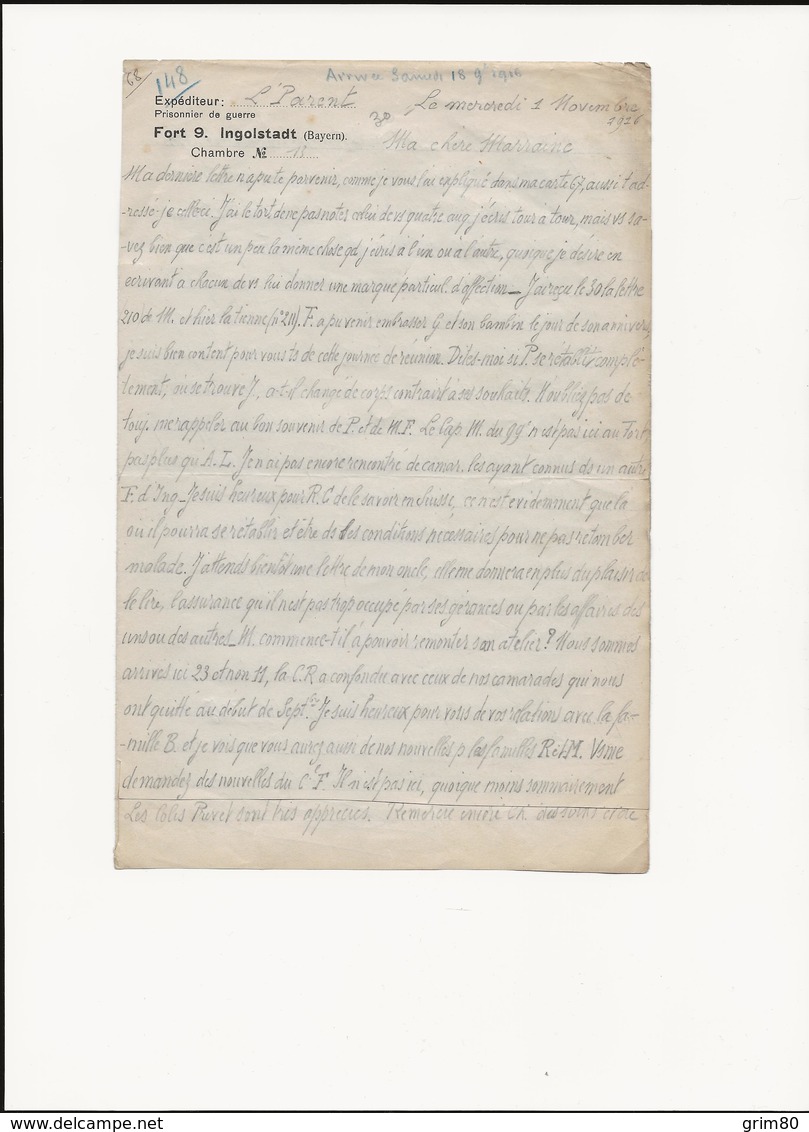 68/ 148/ Arrivée Samedi 18 9bre 1916
Expéditeur: Lt Parent Le mercredi 1 Novembre
Prisonnier de guerre 1916
Fort 9. Ingolstadt (Bayern). 30 Ma chère Marraine
Chambre № 18
Ma dernière lettre n'a pu te parvenir, comme je vous l'ai expliqué dans ma carte 67, aussi t'ad-
-ressé-je celle-ci. J'ai le tort de ne pas noter celui de vs quatre auq. j'écris tour à tour, mais vs sa-
-vez bien que c'est un peu la même chose qd j'écris à l'un ou à l'autre, quoique je désire en
écrivant à chacun de vs lui donner une marque particul. d'affection _ J'ai reçu le 30 la lettre
210 de M. et hier la tienne (n° 211). F. a pu venir embrasser G et son bambin le jour de son annivers,
je suis bien content pour vous ts de cette journée de réunion. Dites-moi si P. se rétablit complè-
tement, où se trouve J, a-t-il changé de corps contrairt à ses souhaits. N'oubliez pas de
touj. me rappeler au bon souvenir de P. et de M.F. Le Cap M. du 99e n'est pas ici au Fort,
pas plus qu'A.L. Je n'ai pas encore rencontré de camar. les ayant connus ds un autre
F. d'Ing _ Je suis heureux pour R.C de le savoir en Suisse, ce n'est évidemment que là
où il pourra se rétablir et être ds les conditions nécessaires pour ne pas retomber
malade. J'attends bientôt une lettre de mon oncle, elle me donnera en plus du plaisir de
le lire, l'assurance qu'il n'est pas trop occupé par ses gérances ou par les affaires des
uns ou des autres _ M. commence-t-il à pouvoir remonter son atelier? Nous sommes
arrivés ici 23 et non 11, la C.R a confondu avec ceux de nos camarades qui nous
ont quitté au début de Septbre. Je suis heureux pour vous de vos relations avec la fa-
-mille B. et je vois que vous aurez aussi de nos nouvelles p. les familles R et M. Vs me
demandez des nouvelles du Ct F. Il n'est pas ici, quoique moins sommairement
Les Colis Prevet sont très appréciés. Remercie encore Ch. des soins et de
delcampe.net
grim80